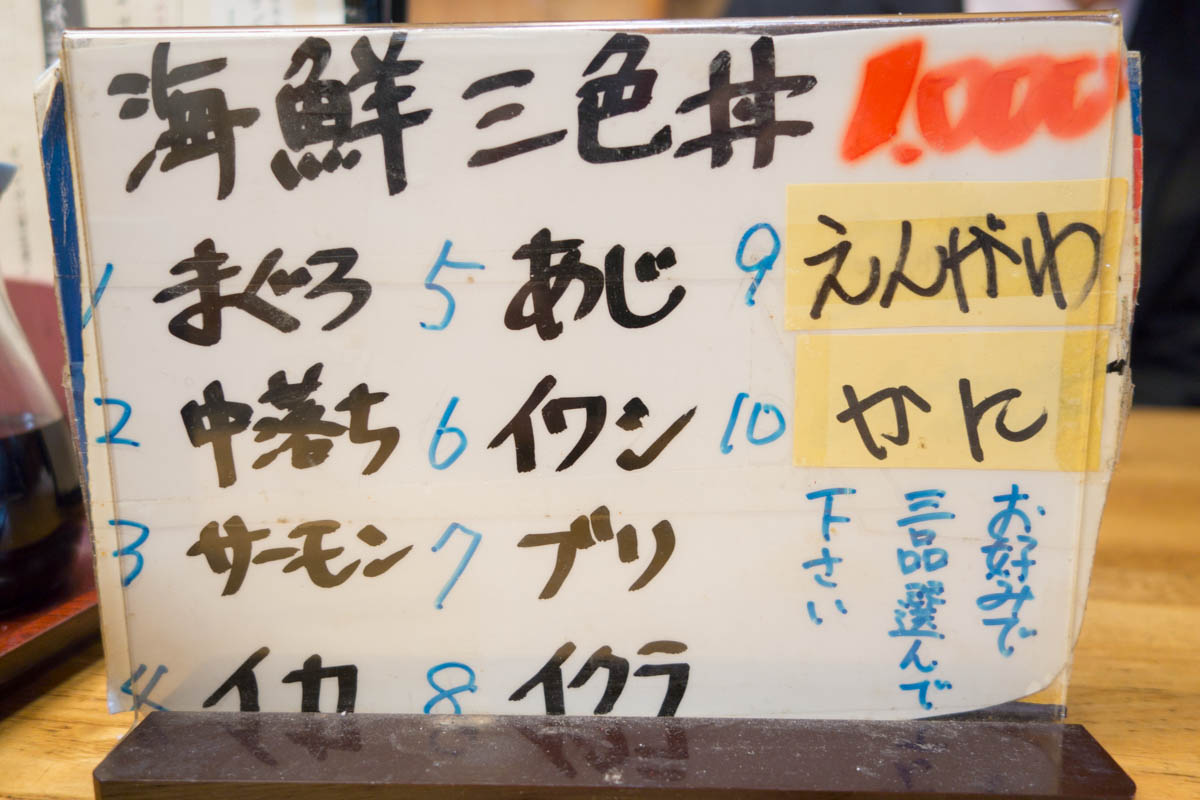 海鮮三色丼 1.000
1 まぐろ
2 中落ち
3 サーモン
4 イカ
5 あじ
6 イワシ
7 ブリ
8 イクラ
9 えんがわ
10 かに
お好みで
三品選んで
下さい